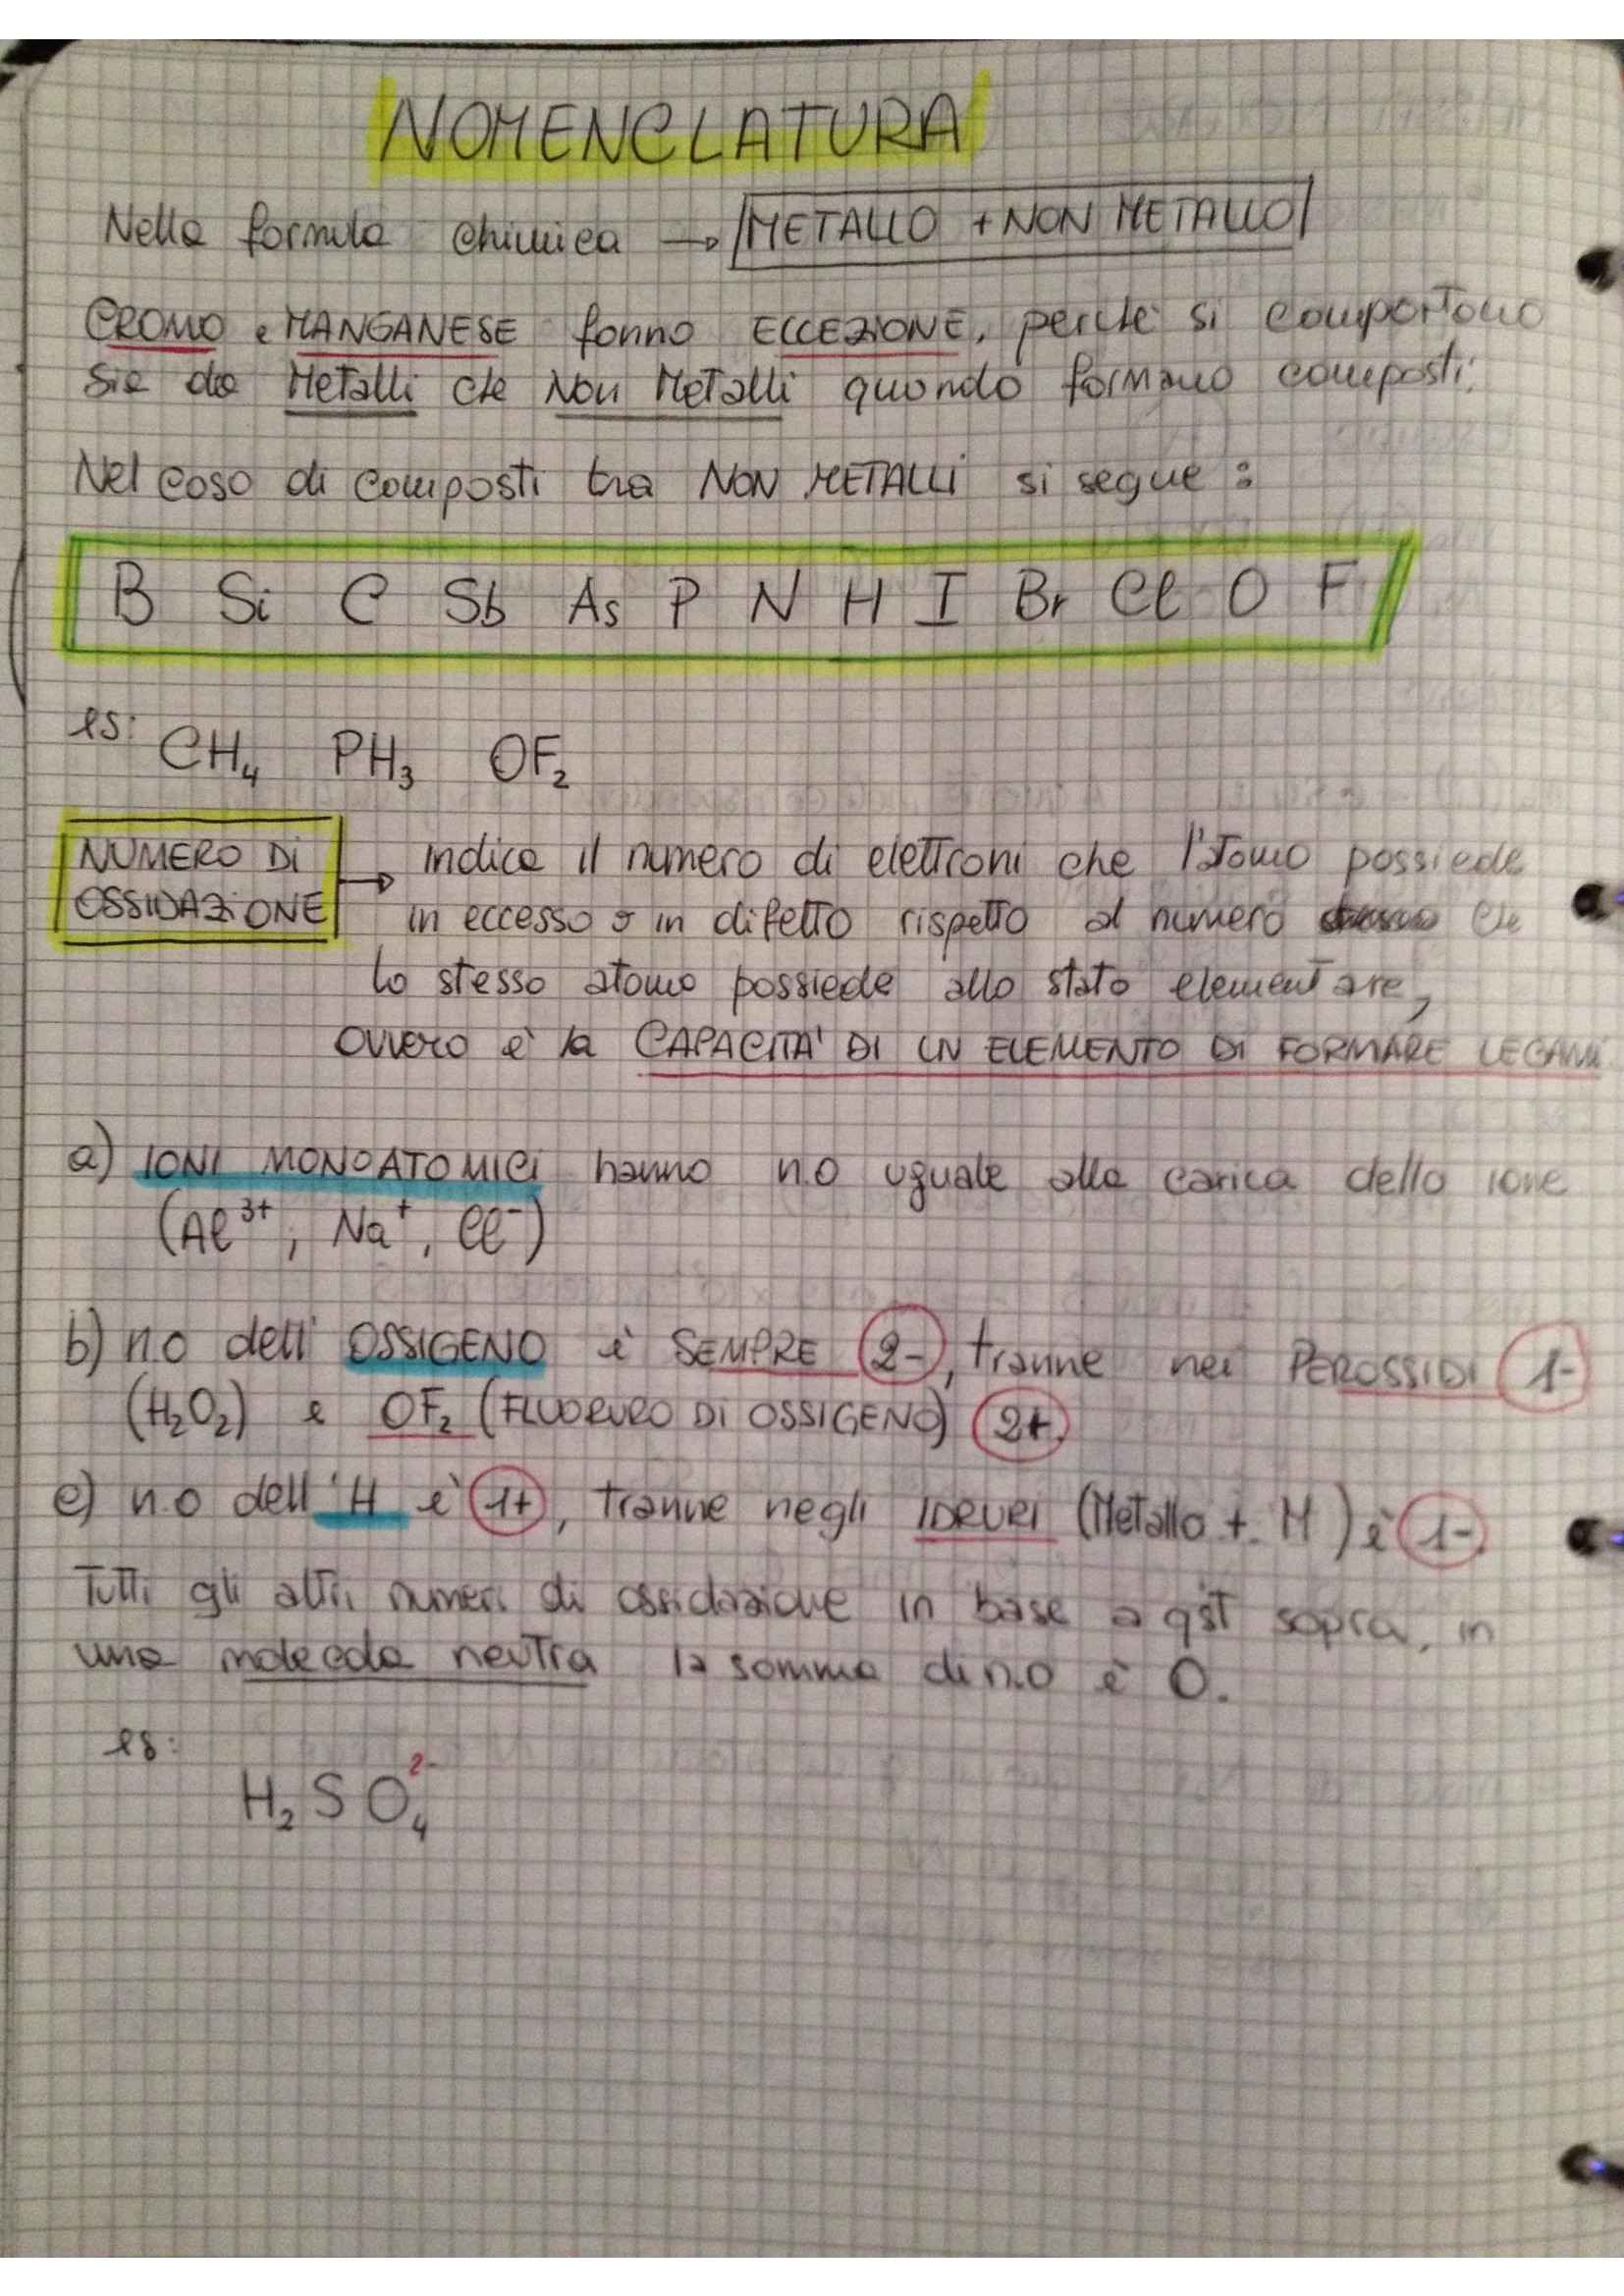 NOMENCLATURA
Nella formula chimica → METALLO + NON METALLO
CROMO e MANGANESE fanno ECCEZIONE, perché si comportano
sia da Metalli che Non Metalli quando formano composti.
Nel caso di composti tra NON METALLI si segue:
B Si C Sb As P N H I Br Cl O F
es: CH₄ PH₃ OF₂
NUMERO DI OSSIDAZIONE → indica il numero di elettroni che l'atomo possiede
in eccesso o in difetto rispetto al numero che
lo stesso atomo possiede allo stato elementare,
ovvero è la CAPACITA' DI UN ELEMENTO DI FORMARE LEGAMI
a) IONI MONOATOMICI hanno n.o uguale alla carica dello ione
(Al³⁺, Na⁺, Cl⁻)
b) n.o dell' OSSIGENO è SEMPRE 2-, tranne nei PEROSSIDI 1-
(H₂O₂) e OF₂ (FLUORURO DI OSSIGENO) 2+.
c) n.o dell'H è 1+, tranne negli IDRURI (Metallo + H) è 1-.
Tutti gli altri numeri di ossidazione in base a qst sopra, in
una molecola neutra la somma di n.o è 0.
es:
H₂SO₄ 2-